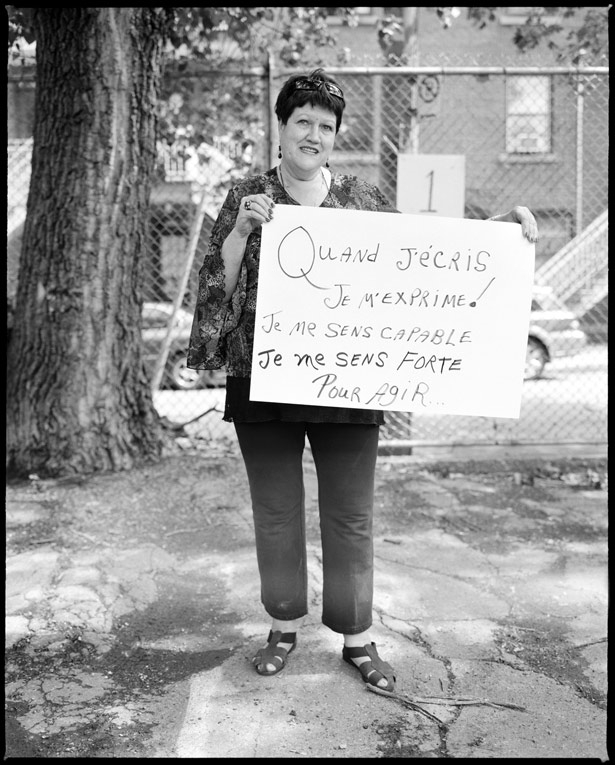 1
QUAND J'ÉCRIS
JE M'EXPRIME!
Je me SENS CAPABLE
Je me SENS FORTE
POUR AGIR...